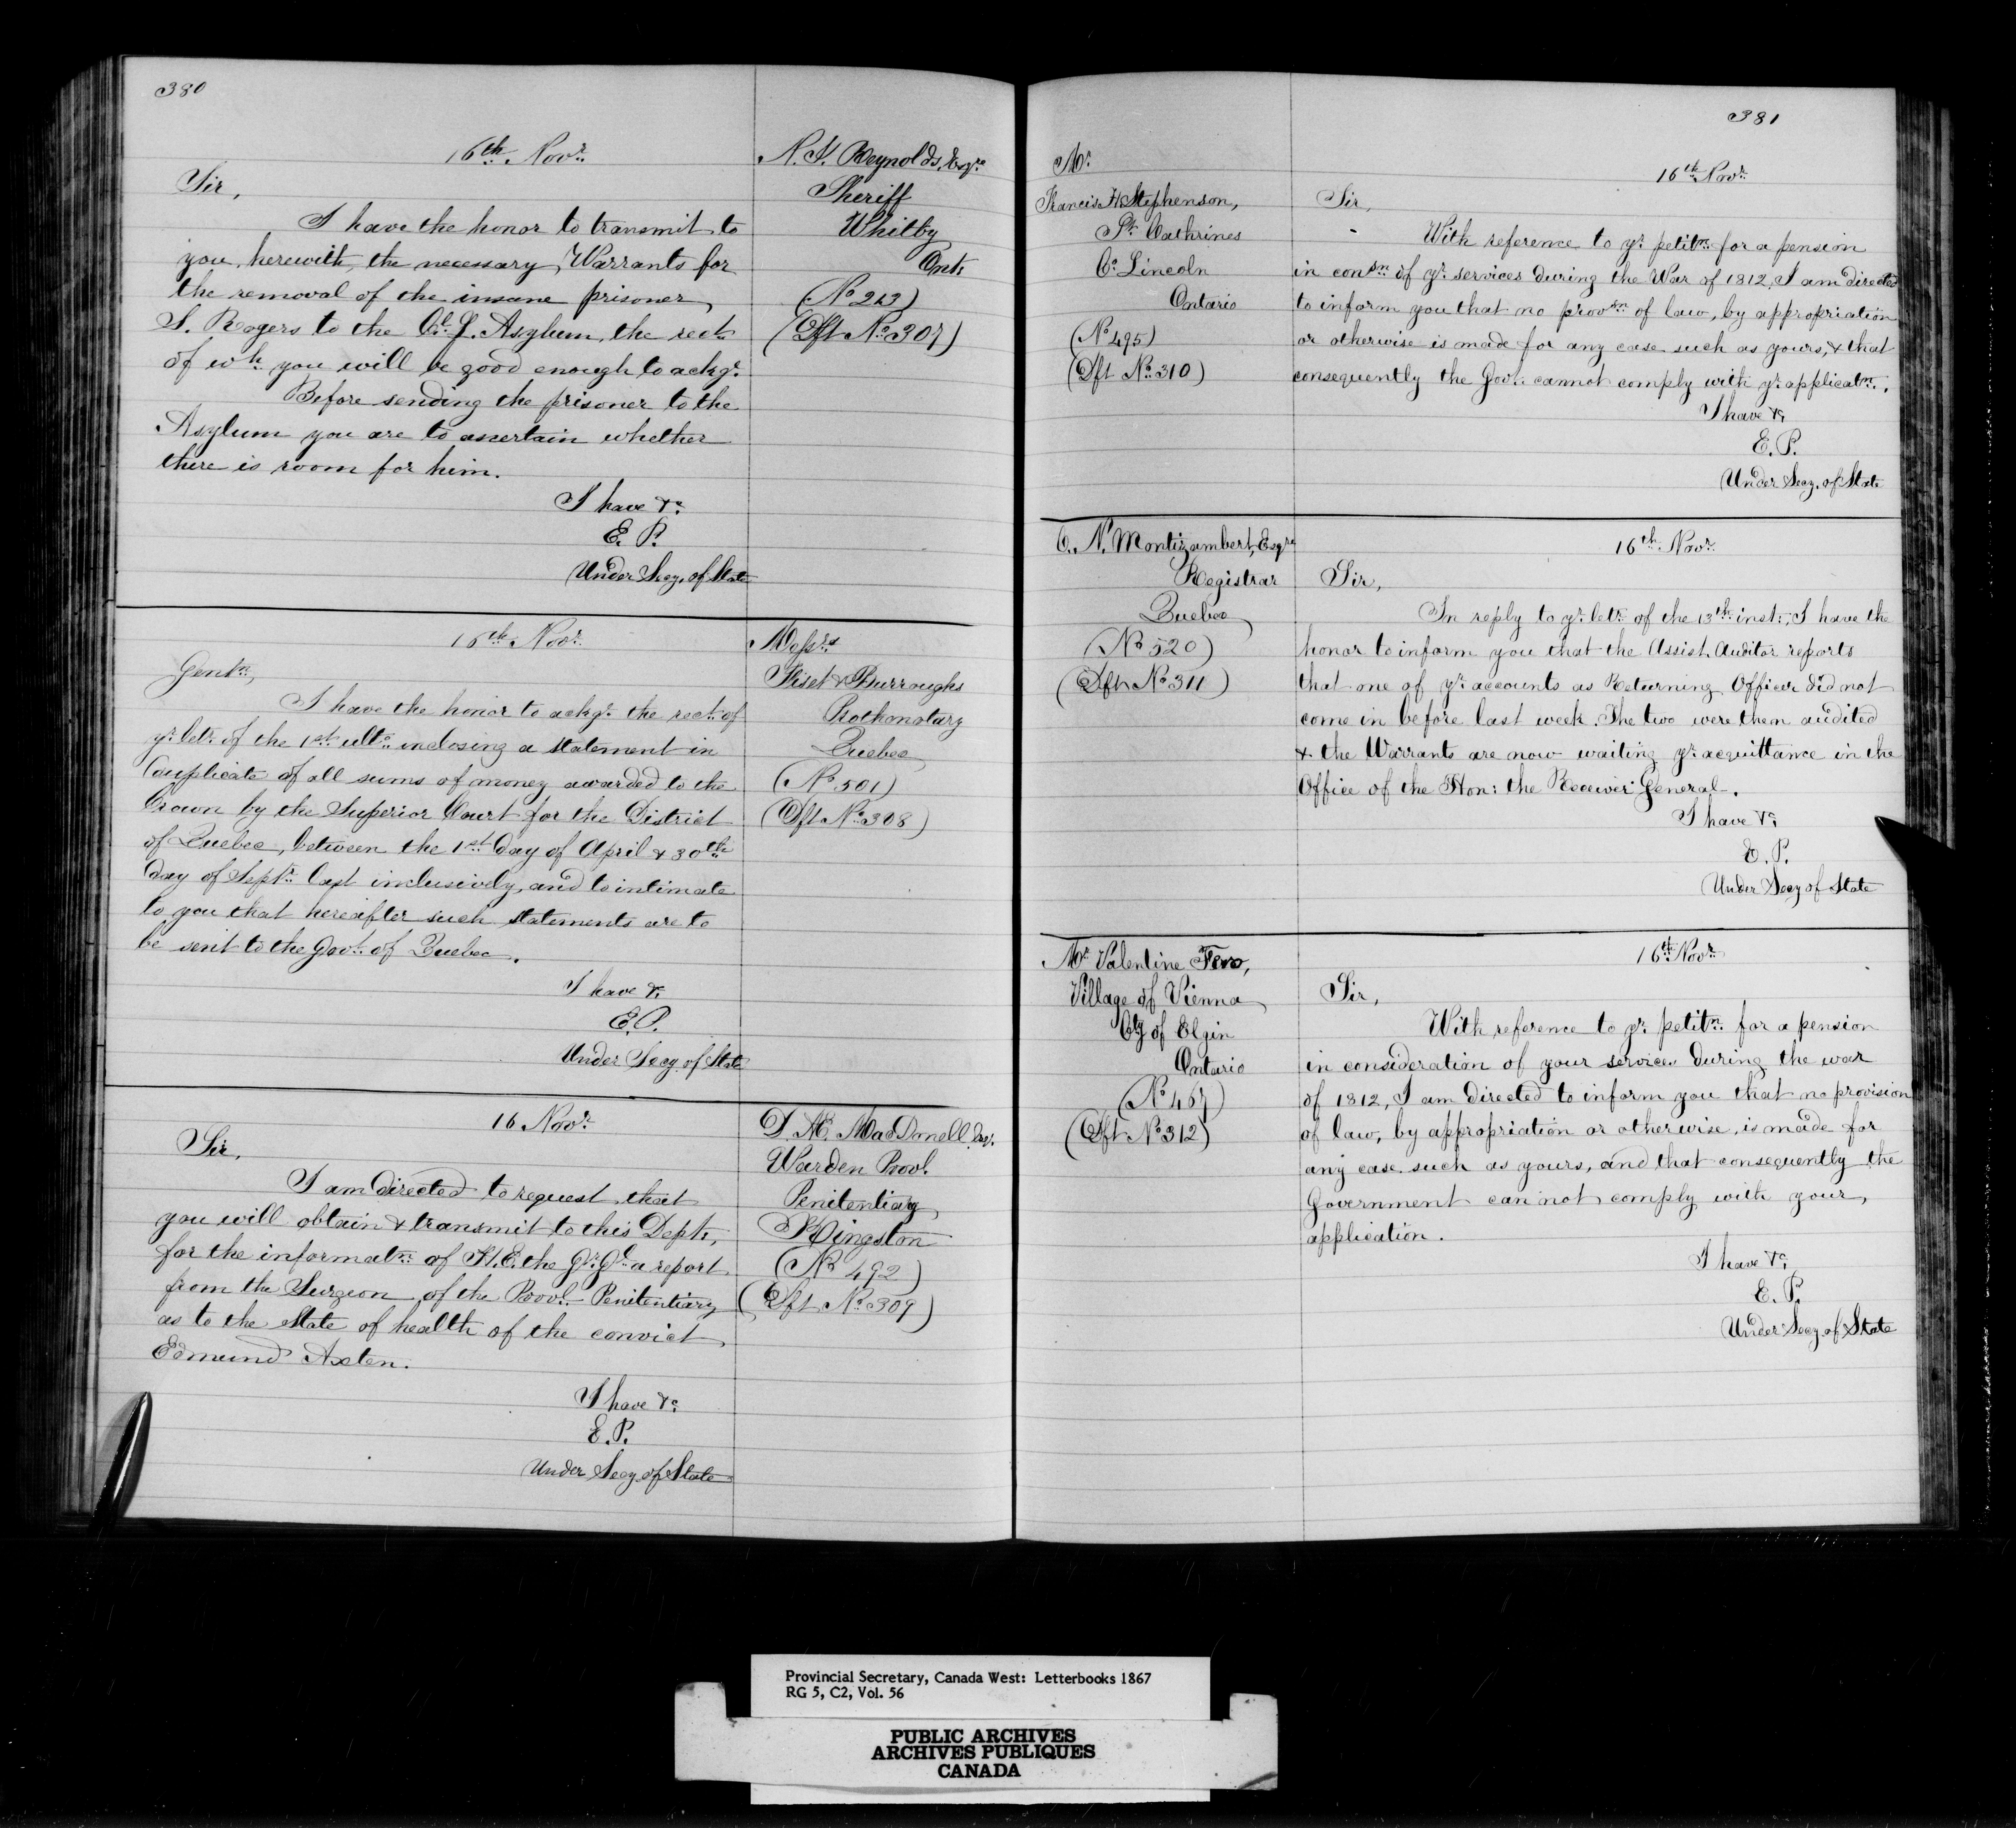 380
16th Novr.
Sir,
I have the honor to transmit to
you, herewith, the necessary Warrants for
the removal of the insane prisoner,
S. Rogers to the Asylum, the rect.
of wh. you will be good enough to ackge.
Before sending the prisoner to the
Asylum you are to ascertain whether
there is room for him.
I have &c.
E. P.
Under Secy. of State
N. F. Reynolds, Esqre
Sheriff
Whitby
Ont.
(No 213)
(Dft No. 307)
16th Novr.
Gentn.,
I have the honor to ackge. the rect. of
yr. letr. of the 1st ulto. inclosing a statement in
duplicate of all sums of money awarded to the
Crown by the Superior Court for the District
of Quebec, between the 1st day of April & 30th
day of Septr. last inclusively, and to intimate
to you that hereafter such statements are to
be sent to the Govt. of Quebec.
I have &c.
E. P.
Under Secy. of State
Messrs
Fiset & Burroughs
Prothonotary
Quebec
(No 501)
(Dft No. 308)
16 Novr.
Sir,
I am directed to request that
you will obtain & transmit to this Dept.,
for the informatn. of H. E. the Gr. Gl. a report
from the Surgeon of the Provl. Penitentiary,
as to the state of health of the convict
Edmund Axten.
I have &c.
E. P.
Under Secy. of State
D. Æ. MacDonell Esq.
Warden Provl.
Penitentiary
Kingston
(No 492)
(Dft No. 309)
381
Mr.
Francis H. Stephenson,
St. Cathrines
Co. Lincoln
Ontario
(No 495)
(Dft No. 310)
16th Novr.
Sir,
With reference to yr. petitn. for a pension
in consn. of yr. services during the War of 1812, I am directed
to inform you that no provsn. of law, by appropriation
or otherwise is made for any case such as yours, & that
consequently the Govt. cannot comply with yr. applicatn.
I have &c.
E. P.
Under Secy. of State
C. N. Montizambert, Esqre
Registrar
Quebec
(No 520)
(Dft No. 311)
16th Novr.
Sir,
In reply to yr. letr. of the 13th inst., I have the
honor to inform you that the Assist. Auditor reports
that one of yr. accounts as Returning Officer did not
come in before last week. The two were them audited
& the Warrants are now waiting yr. acquittance in the
Office of the Hon: the Receiver General.
I have &c.
E. P.
Under Secy of State
Mr. Valentine Fero,
Village of Vienna
Cty of Elgin
Ontario
(No 467)
(Dft No. 312)
16th Novr.
Sir,
With reference to yr. petitn. for a pension
in consideration of your services during the war
of 1812, I am directed to inform you that no provision
of law, by appropriation or otherwise, is made for
any case such as yours, and that consequently the
Government can not comply with your
application.
I have &c.
E. P.
Under Secy. of State
Provincial Secretary, Canada West: Letterbooks 1867
RG 5, C2, Vol. 56
PUBLIC ARCHIVES
ARCHIVES PUBLIQUES
CANADA